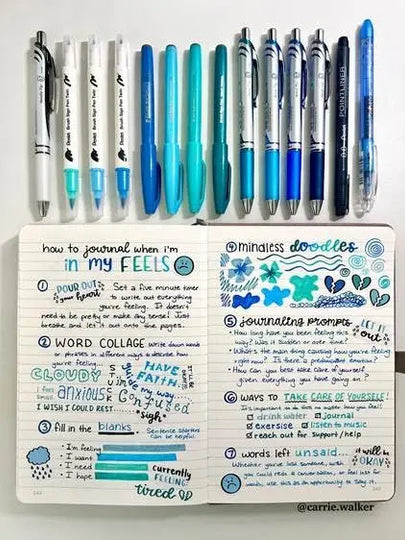 Pentel Brush Sign Pen Twin
Pentel Brush Sign Pen Twin
Pentel Brush Sign Pen Twin
POINTLINER
0.8 Pentel
how to journal when i'm
in my FEELS
1 POUR OUT
your heart
Set a five minute timer
to write out everything
you're feeling. It doesn't
need to be pretty or make any sense! Just
breathe and let it out onto the pages.
2 WORD COLLAGE write down words
or phrases in different ways to describe how
you're feeling...
CLOUDY
STUCK
HAVE
FAITH.
I feel
small
anxious
confused
I WISH I COULD REST...
*sigh*
3 fill in the blanks
Sentence starters
can be helpful:
• I'm feeling
• I want
• I need
• I hope
currently
FEELING:
tired
4 mindless doodles
5 journaling prompts
LET IT
out
• How long have you been feeling this
way? Was it sudden or over time?
• What's the main thing causing how you're feeling
right now? Is there a predominant emotion?
• How can you best take care of yourself
given everything you have going on?
6 WAYS TO TAKE CARE OF YOURSELF!
It's important to do this no matter how you feel!
drink water journal
exercise listen to music
reach out for support/help
7 words left unsaid...
it will be
OKAY
Whether you've lost someone, wish
you could redo a conversation, or feel lost for
words, use this as an opportunity to say it.
@carrie.walker